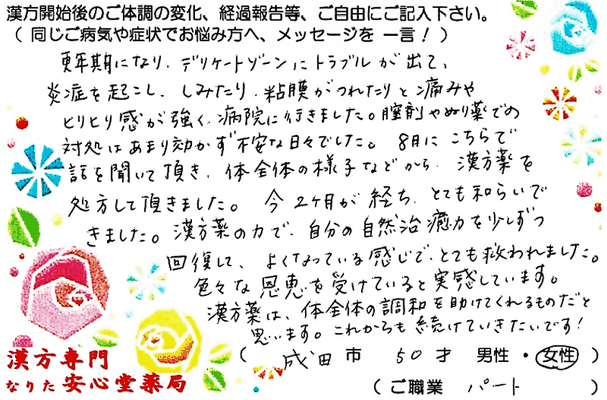 漢方開始後のご体調の変化、経過報告等、ご自由にご記入下さい。
（同じご病気や症状でお悩み方へ、メッセージを 一言！）
更年期になり、デリケートゾーンにトラブルが出て、
炎症を起こし、しみたり、粘膜がつれたりと痛みや
ヒリヒリ感が強く、病院に行きました。膣剤やぬり薬での
対処はあまり効かず不安な日々でした。8月にこちらで
話を聞いて頂き、体全体の様子などから、漢方薬を
処方して頂きました。今2ヶ月が経ち、とても和らいで
きました。漢方薬の力で、自分の自然治癒力を少しずつ
回復して、よくなっている感じで、とても救われました。
色々な恩恵を受けていると実感しています。
漢方薬は、体全体の調和を助けてくれるものだと
思います。これからも続けていきたいです！
漢方専門
なりた安心堂薬局
（成田市 50才 男性・女性）
（ご職業 パート ）